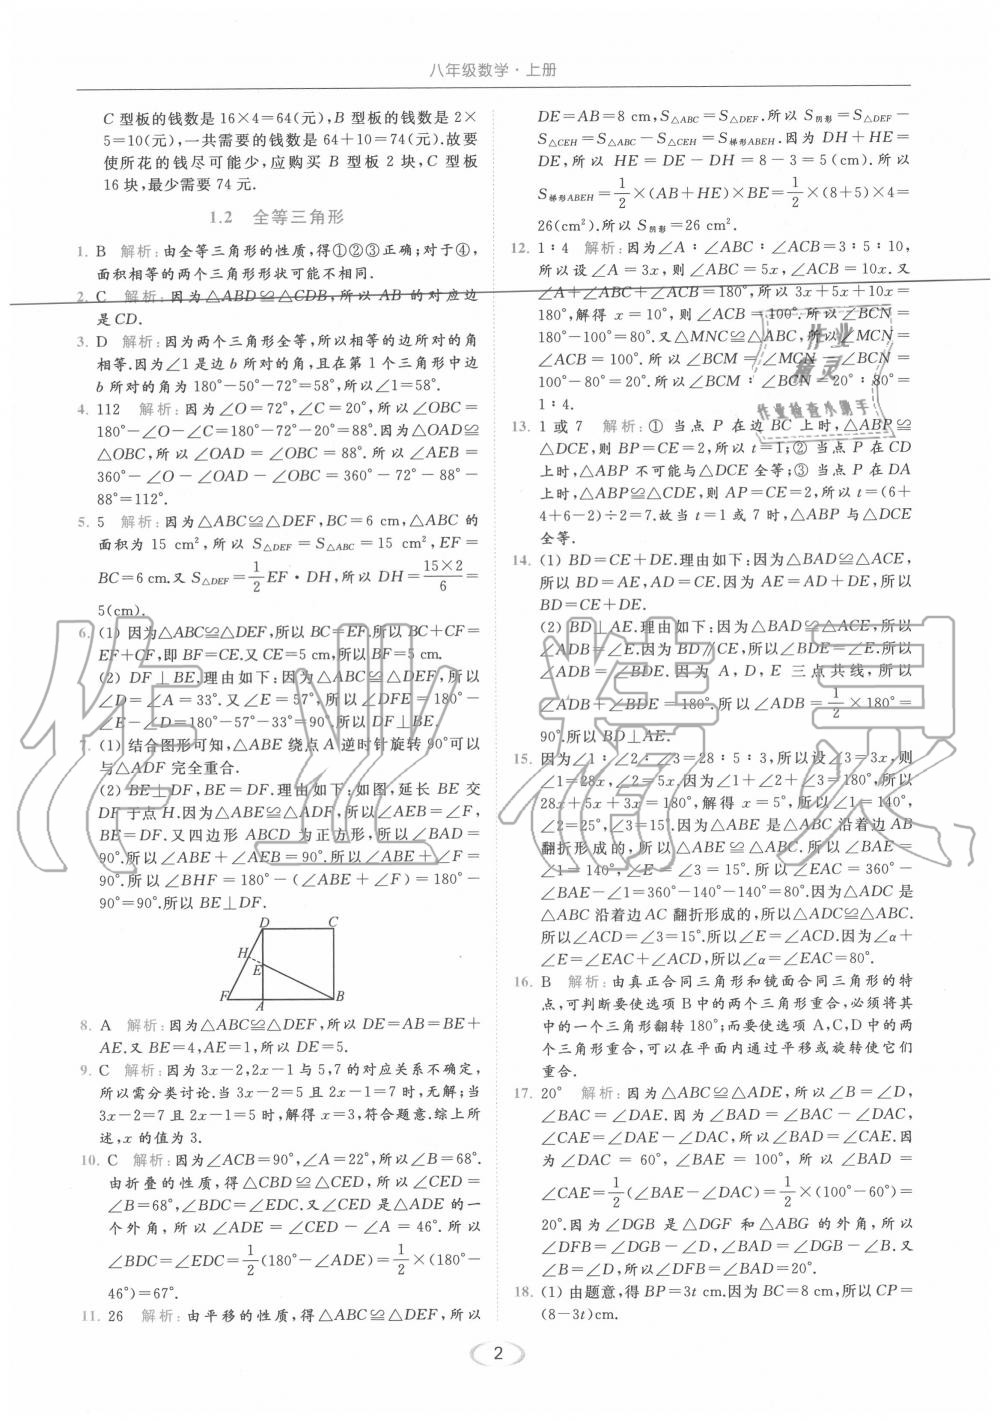 八年级数学·上册
C 型板的钱数是 16×4=64(元),B 型板的钱数是 2×
5=10(元),一共需要的钱数是 64+10=74(元).故要
使所花的钱尽可能少,应购买 B 型板 2 块,C 型板
16 块,最少需要 74 元.
1.2 全等三角形
1. B 解析:由全等三角形的性质,得①②③正确;对于④,
面积相等的两个三角形形状可能不相同.
2. C 解析:因为△ABD≌△CDB,所以 AB 的对应边
是 CD.
3. D 解析:因为两个三角形全等,所以相等的边所对的角
相等.因为∠1 是边 b 所对的角,且在第 1 个三角形中边
b 所对的角为 180°-50°-72°=58°,所以∠1=58°.
4. 112 解析:因为∠O=72°,∠C=20°,所以∠OBC=
180°-∠O-∠C=180°-72°-20°=88°.因为△OAD≌
△OBC,所以∠OAD=∠OBC=88°.所以∠AEB=
360°-∠O-∠OAD-∠OBC=360°-72°-88°-
88°=112°.
5. 5 解析:因为△ABC≌△DEF,BC=6 cm,△ABC 的
面积为 15 cm²,所以 S△DEF=S△ABC=15 cm²,EF=
BC=6 cm.又 S△DEF=1/2 EF·DH,所以 DH=(15×2)/6=
5(cm).
6. (1) 因为△ABC≌△DEF,所以 BC=EF.所以 BC+CF=
EF+CF,即 BF=CE.又 CE=5 cm,所以 BF=5 cm.
(2) DF⊥BE.理由如下:因为△ABC≌△DEF,所以
∠D=∠A=33°.又∠E=57°,所以∠DFE=180°-
∠E-∠D=180°-57°-33°=90°.所以 DF⊥BE.
7. (1) 结合图形可知,△ABE 绕点 A 逆时针旋转 90°可以
与△ADF 完全重合.
(2) BE⊥DF,BE=DF.理由如下:如图,延长 BE 交
DF 于点 H.因为△ABE≌△ADF,所以∠AEB=∠F,
BE=DF.又四边形 ABCD 为正方形,所以∠BAD=
90°.所以∠ABE+∠AEB=90°.所以∠ABE+∠F=
90°.所以∠BHF=180°-(∠ABE+∠F)=180°-
90°=90°.所以 BE⊥DF.
D C
H
E
F A B
8. A 解析:因为△ABC≌△DEF,所以 DE=AB=BE+
AE.又 BE=4,AE=1,所以 DE=5.
9. C 解析:因为 3x-2,2x-1 与 5,7 的对应关系不确定,
所以需分类讨论.当 3x-2=5 且 2x-1=7 时,无解;当
3x-2=7 且 2x-1=5 时,解得 x=3,符合题意.综上所
述,x 的值为 3.
10. C 解析:因为∠ACB=90°,∠A=22°,所以∠B=68°.
由折叠的性质,得△CBD≌△CED,所以∠CED=
∠B=68°,∠BDC=∠EDC.又∠CED 是△ADE 的一
个外角,所以∠ADE=∠CED-∠A=46°.所以
∠BDC=∠EDC=1/2(180°-∠ADE)=1/2×(180°-
46°)=67°.
11. 26 解析:由平移的性质,得△ABC≌△DEF,所以
DE=AB=8 cm,S△ABC=S△DEF.所以 S阴影=S△DEF-
S△CEH=S△ABC-S△CEH=S梯形ABEH.因为 DH+HE=
DE,所以 HE=DE-DH=8-3=5(cm).所以
S梯形ABEH=1/2×(AB+HE)×BE=1/2×(8+5)×4=
26(cm²).所以 S阴影=26 cm².
12. 1∶4 解析:因为∠A∶∠ABC∶∠ACB=3∶5∶10,
所以设∠A=3x,则∠ABC=5x,∠ACB=10x.又
∠A+∠ABC+∠ACB=180°,所以 3x+5x+10x=
180°,解得 x=10°,则∠ACB=100°.所以∠BCN=
180°-100°=80°.又△MNC≌△ABC,所以∠MCN=
∠ACB=100°.所以∠BCM=∠MCN-∠BCN=
100°-80°=20°.所以∠BCM∶∠BCN=20°∶80°=
1∶4.
13. 1 或 7 解析:① 当点 P 在边 BC 上时,△ABP≌
△DCE,则 BP=CE=2,所以 t=1;② 当点 P 在 CD
上时,△ABP 不可能与△DCE 全等;③ 当点 P 在 DA
上时,△ABP≌△CDE,则 AP=CE=2,所以 t=(6+
4+6-2)÷2=7.故当 t=1 或 7 时,△ABP 与△DCE
全等.
14. (1) BD=CE+DE.理由如下:因为△BAD≌△ACE,
所以 BD=AE,AD=CE.因为 AE=AD+DE,所以
BD=CE+DE.
(2) BD⊥AE.理由如下:因为△BAD≌△ACE,所以
∠ADB=∠E.因为 BD∥CE,所以∠BDE=∠E.所以
∠ADB=∠BDE.因为 A,D,E 三点共线,所以
∠ADB+∠BDE=180°.所以∠ADB=1/2×180°=
90°.所以 BD⊥AE.
15. 因为∠1∶∠2∶∠3=28∶5∶3,所以设∠3=3x,则
∠1=28x,∠2=5x.因为∠1+∠2+∠3=180°,所以
28x+5x+3x=180°,解得 x=5°,所以∠1=140°,
∠2=25°,∠3=15°.因为△ABE 是△ABC 沿着边 AB
翻折形成的,所以△ABE≌△ABC.所以∠BAE=
∠1=140°,∠E=∠3=15°.所以∠EAC=360°-
∠BAE-∠1=360°-140°-140°=80°.因为△ADC 是
△ABC 沿着边 AC 翻折形成的,所以△ADC≌△ABC.
所以∠ACD=∠3=15°.所以∠E=∠ACD.因为∠α+
∠E=∠EAC+∠ACD,所以∠α=∠EAC=80°.
16. B 解析:由真正合同三角形和镜面合同三角形的特
点,可判断要使选项 B 中的两个三角形重合,必须将其
中的一个三角形翻转 180°;而要使选项 A,C,D 中的两
个三角形重合,可以在平面内通过平移或旋转使它们
重合.
17. 20° 解析:因为△ABC≌△ADE,所以∠B=∠D,
∠BAC=∠DAE.因为∠BAD=∠BAC-∠DAC,
∠CAE=∠DAE-∠DAC,所以∠BAD=∠CAE.因
为∠DAC=60°,∠BAE=100°,所以∠BAD=
∠CAE=1/2(∠BAE-∠DAC)=1/2×(100°-60°)=
20°.因为∠DGB 是△DGF 和△ABG 的外角,所以
∠DFB=∠DGB-∠D,∠BAD=∠DGB-∠B.又
∠B=∠D,所以∠DFB=∠BAD=20°.
18. (1) 由题意,得 BP=3t cm.因为 BC=8 cm,所以 CP=
(8-3t)cm.
2
作业精灵
作业
精灵
作业检查小助手